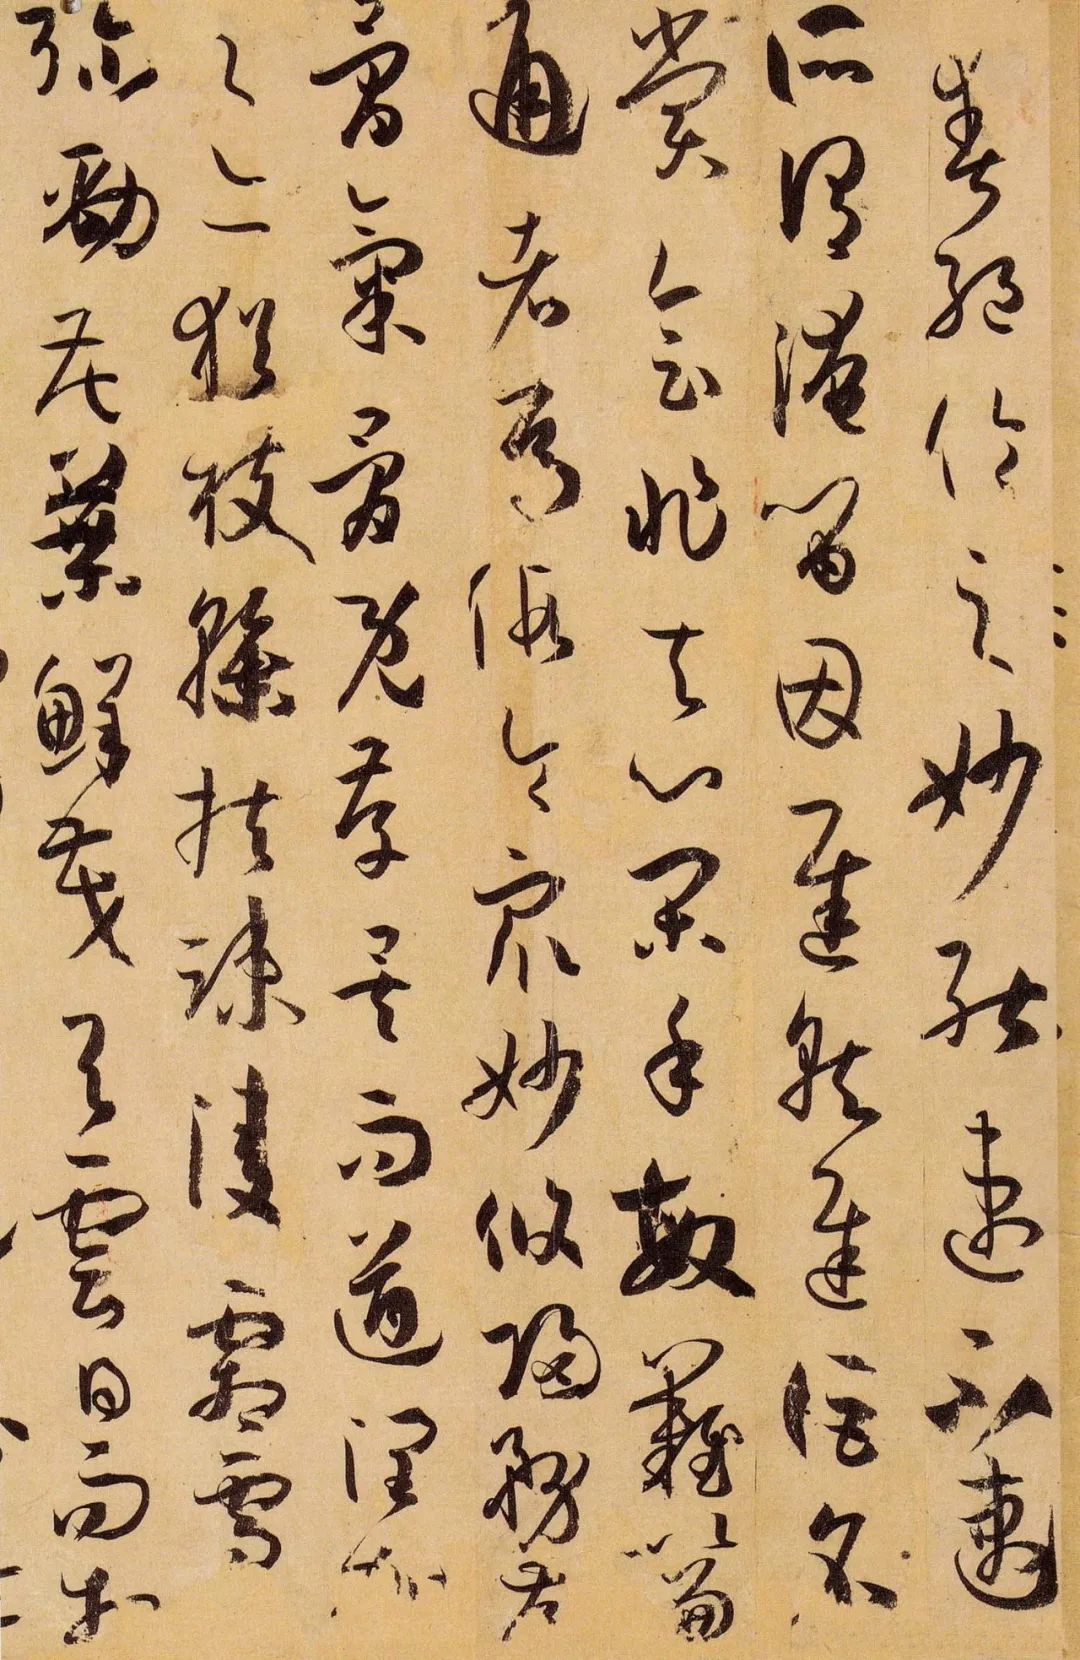 爽絕倫之妙能速不速
所謂淹留因遲就遲詎名
賞會非夫心閑手敏難以兼
通者焉假令衆妙攸歸務存
骨氣骨既存矣而遒潤加
之亦猶枝幹扶疎凌霜雪
彌勁花葉鮮茂與雲日而相